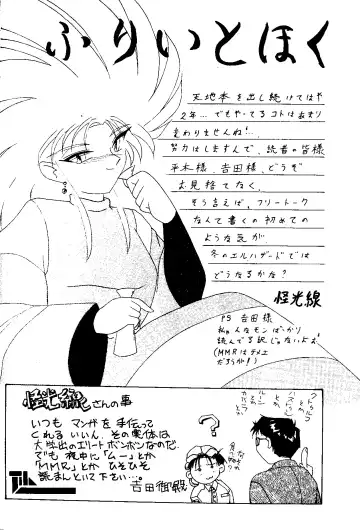 ふりいとほく
天地本を出し続けてはや
2年…でもやってるコトはあまり
変わりませんね!…
努力はしますんで、読者の皆様
平木様、吉田様、どうぞ
お見捨てなく。
そう言えば、フリートーク
なんて書くの初めての
ような気が
冬のエルハザードでは
どうなるかな?
怪光線
PS 吉田様
私。んなモンばかり
読んでる訳じゃないよ!
(MMRはテメエ
だろうが!)
怪光線さんの事
いつもマンガを手伝って
くれるいい人。その実体は
大学出のエリートボンボンなので
でも夜中に「ムー」とか
「MMR」とかひそひそ
読まんといて下さい…。
吉田御殿
?